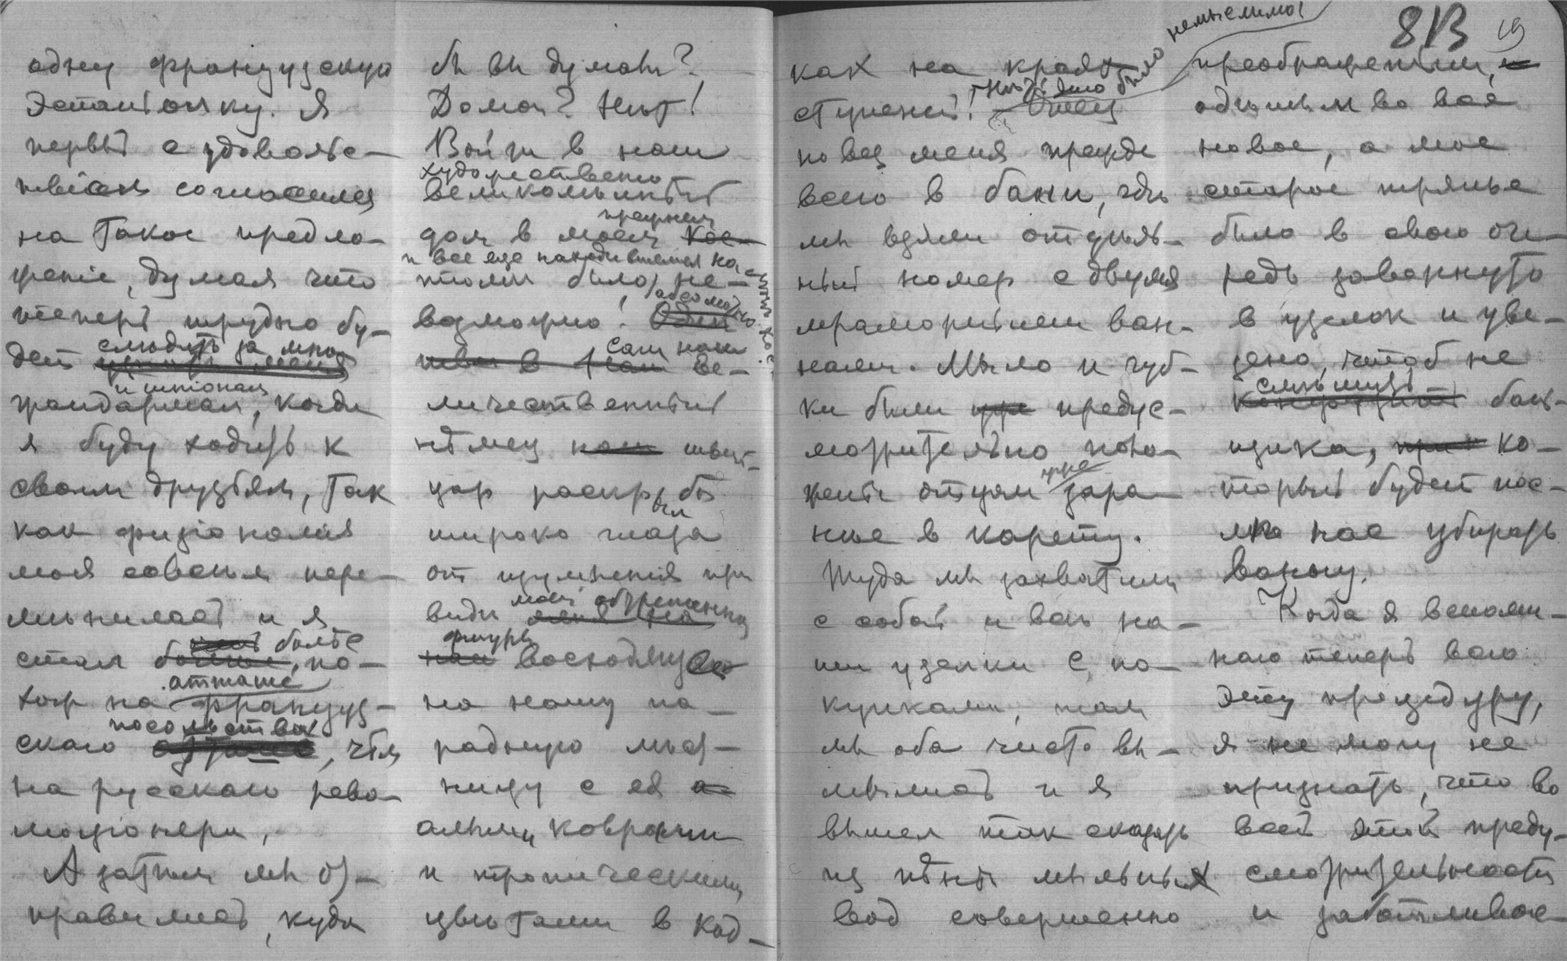 одну французскую
эспаньолку. Я
первый с удовольс-
твіем согласился
на такое предло-
женіе, думая что
теперь трудно бу-
дет следить за мною
и шпіонам
жандармам, когда
я буду ходить к
своим друзьям, так
как физіономія
моя совсем пере-
менилась и я
стал более по-
хож на атташе французс-
скаго посольства, чем
на русскаго рево-
люціонера.
А затем мы от-
правились, куда
бы вы думали?
Домой? Нет!
Войти в наш
художественно
великолепный
дом в моем прежнем
и все еще находившемся на
было не-
возможно! абсолютно
Сам наш ве-
личественный
немец швей-
цар раскрыл бы
широко глаза
от изумленія при
виде моей
фигуры восходящей
на нашу па-
радную лест-
ницу с ея
алыми коврами
и тропическими
цветами в кад-
ках на краях
ступеней! Нет! это было немыслимо!
Отец
повез меня прежде
всего в бани, где
мы взяли отдель-
ный номер с двумя
мраморными ван-
нами. Мыло и губ-
ки были предус-
мотрительно поло-
жены отцом уже зара-
нее в карету.
Туда мы захватили
с собой и весь на-
ши узелки с по-
купками, там
мы оба чисто вы-
мылись и я
вышел так сказать
из пены мыльных
вод совершенно
преображенным,
одетым во все
новое, а мое
старое тряпье
было в свою оче-
редь завернуто
в узелок и уве-
зено, чтоб не
смыть
бан-
щика, ко-
торый будет пос-
ле нас убирать
ванну.
Когда я вспоми-
наю теперь всю
эту процедуру,
я не могу не
признать, что во
всей этой преду-
смотрительности
и заботливос-
8В 19